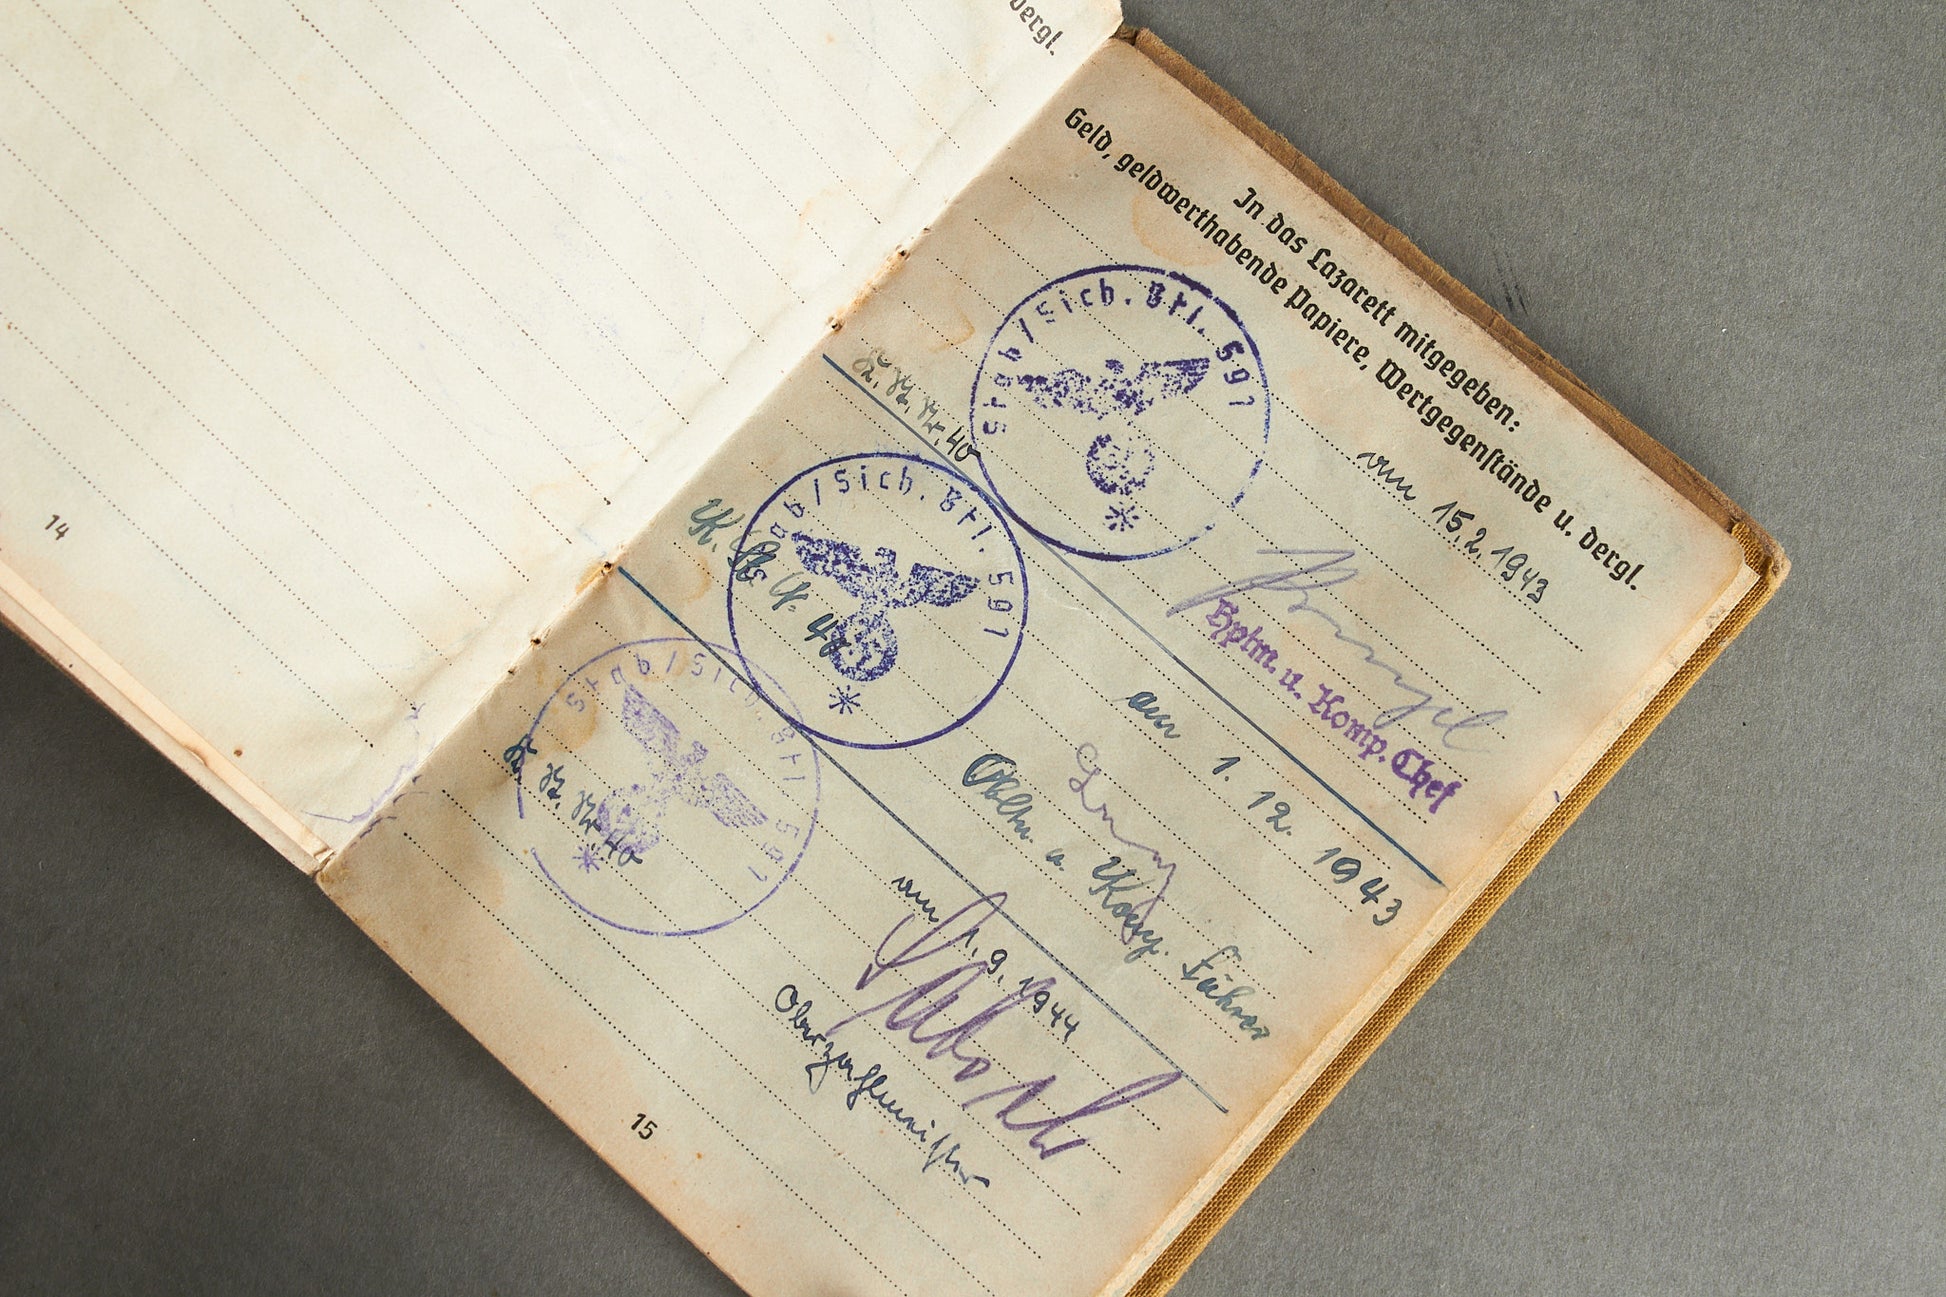 dergl.
14
In das Lazarett mitgegeben:
Geld, geldwerthabende Papiere, Wertgegenstände u. dergl.
Stab/Sich. Btl. 591
am 15.2.1943
Nr. 40
Hptm. u. Komp. Chef
Stab/Sich. Btl. 591
40
am 1. 12. 1943
Obltn. u. Komp. Führer
Stab/Sich. Btl. 591
Nr. 40
am 1.9.1944
Oberzahlmeister
15